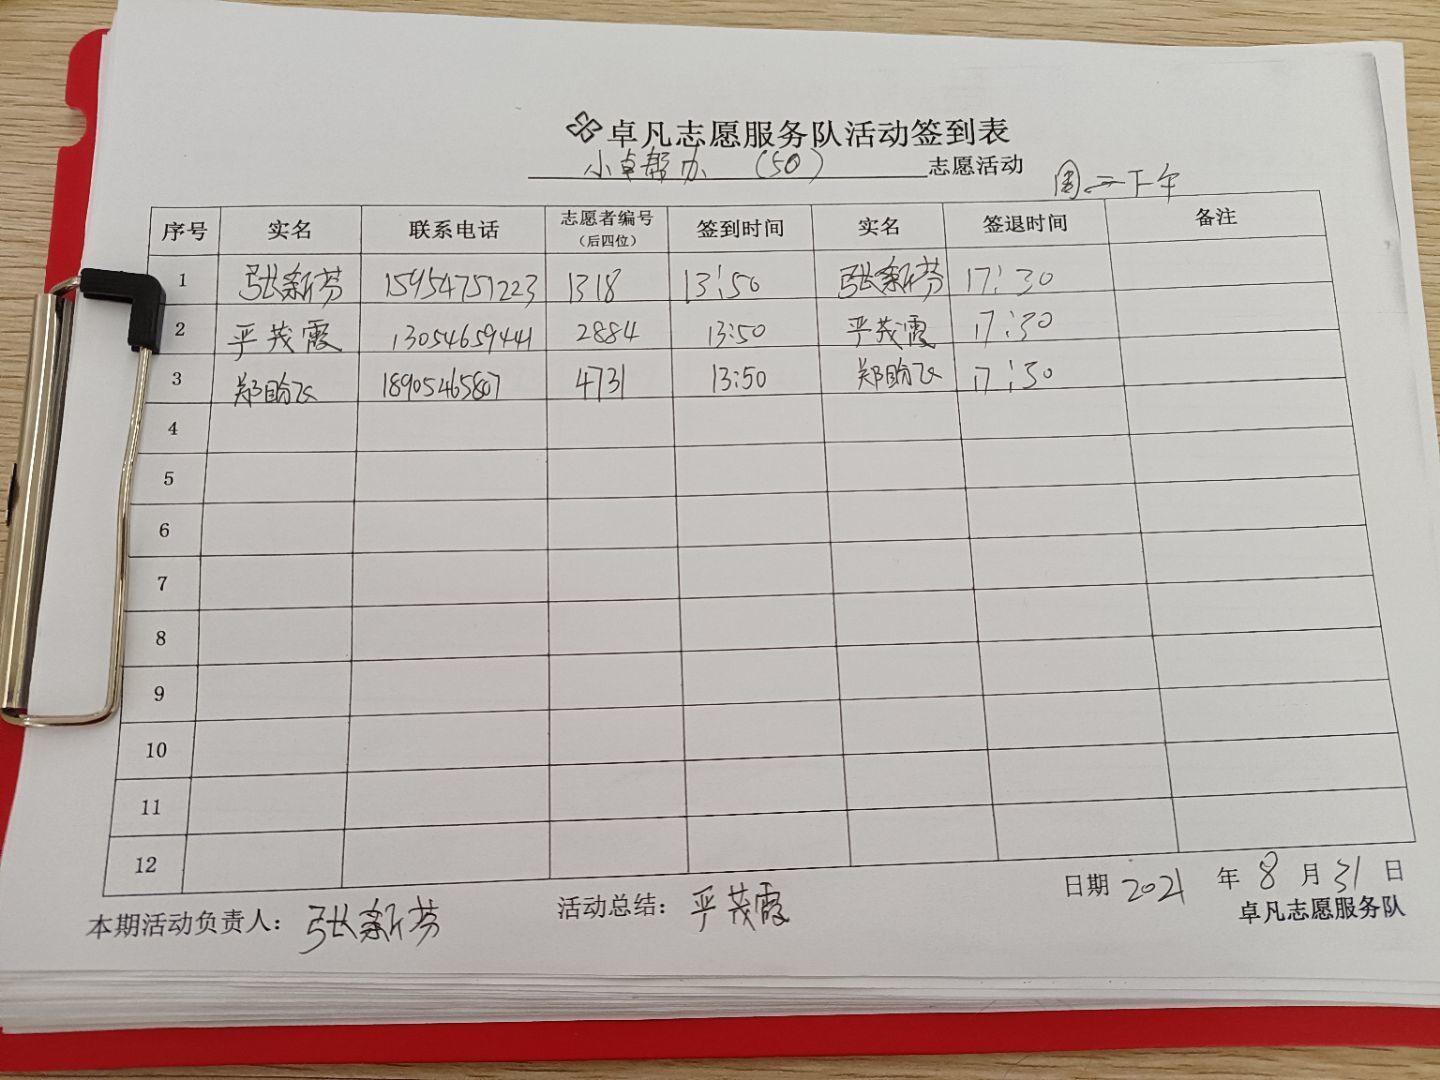 卓凡志愿服务队活动签到表
小卓帮办 (50) 志愿活动
周二下午
序号 实名 联系电话 志愿者编号（后四位） 签到时间 实名 签退时间 备注
1 张新芬 15954757223 1318 13:50 张新芬 17:30
2 严茂霞 13054659441 2884 13:50 严茂霞 17:30
3 郑 18905465807 4731 13:50 郑 17:30
4
5
6
7
8
9
10
11
12
本期活动负责人：张新芬 活动总结：严茂霞 日期 2021 年 8 月 31 日
卓凡志愿服务队